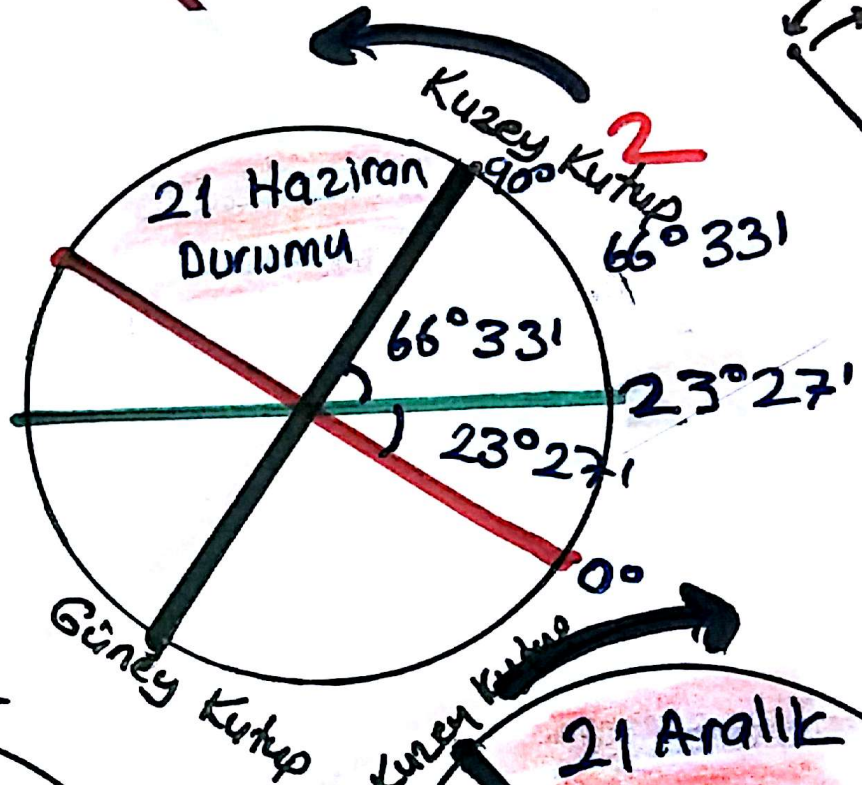 Kuzey Kutup
2
90°
66° 33'
21 Haziran
Durumu
66° 33'
23° 27'
23° 27'
0°
Güney Kutup
Kuzey Kutup
21 Aralık